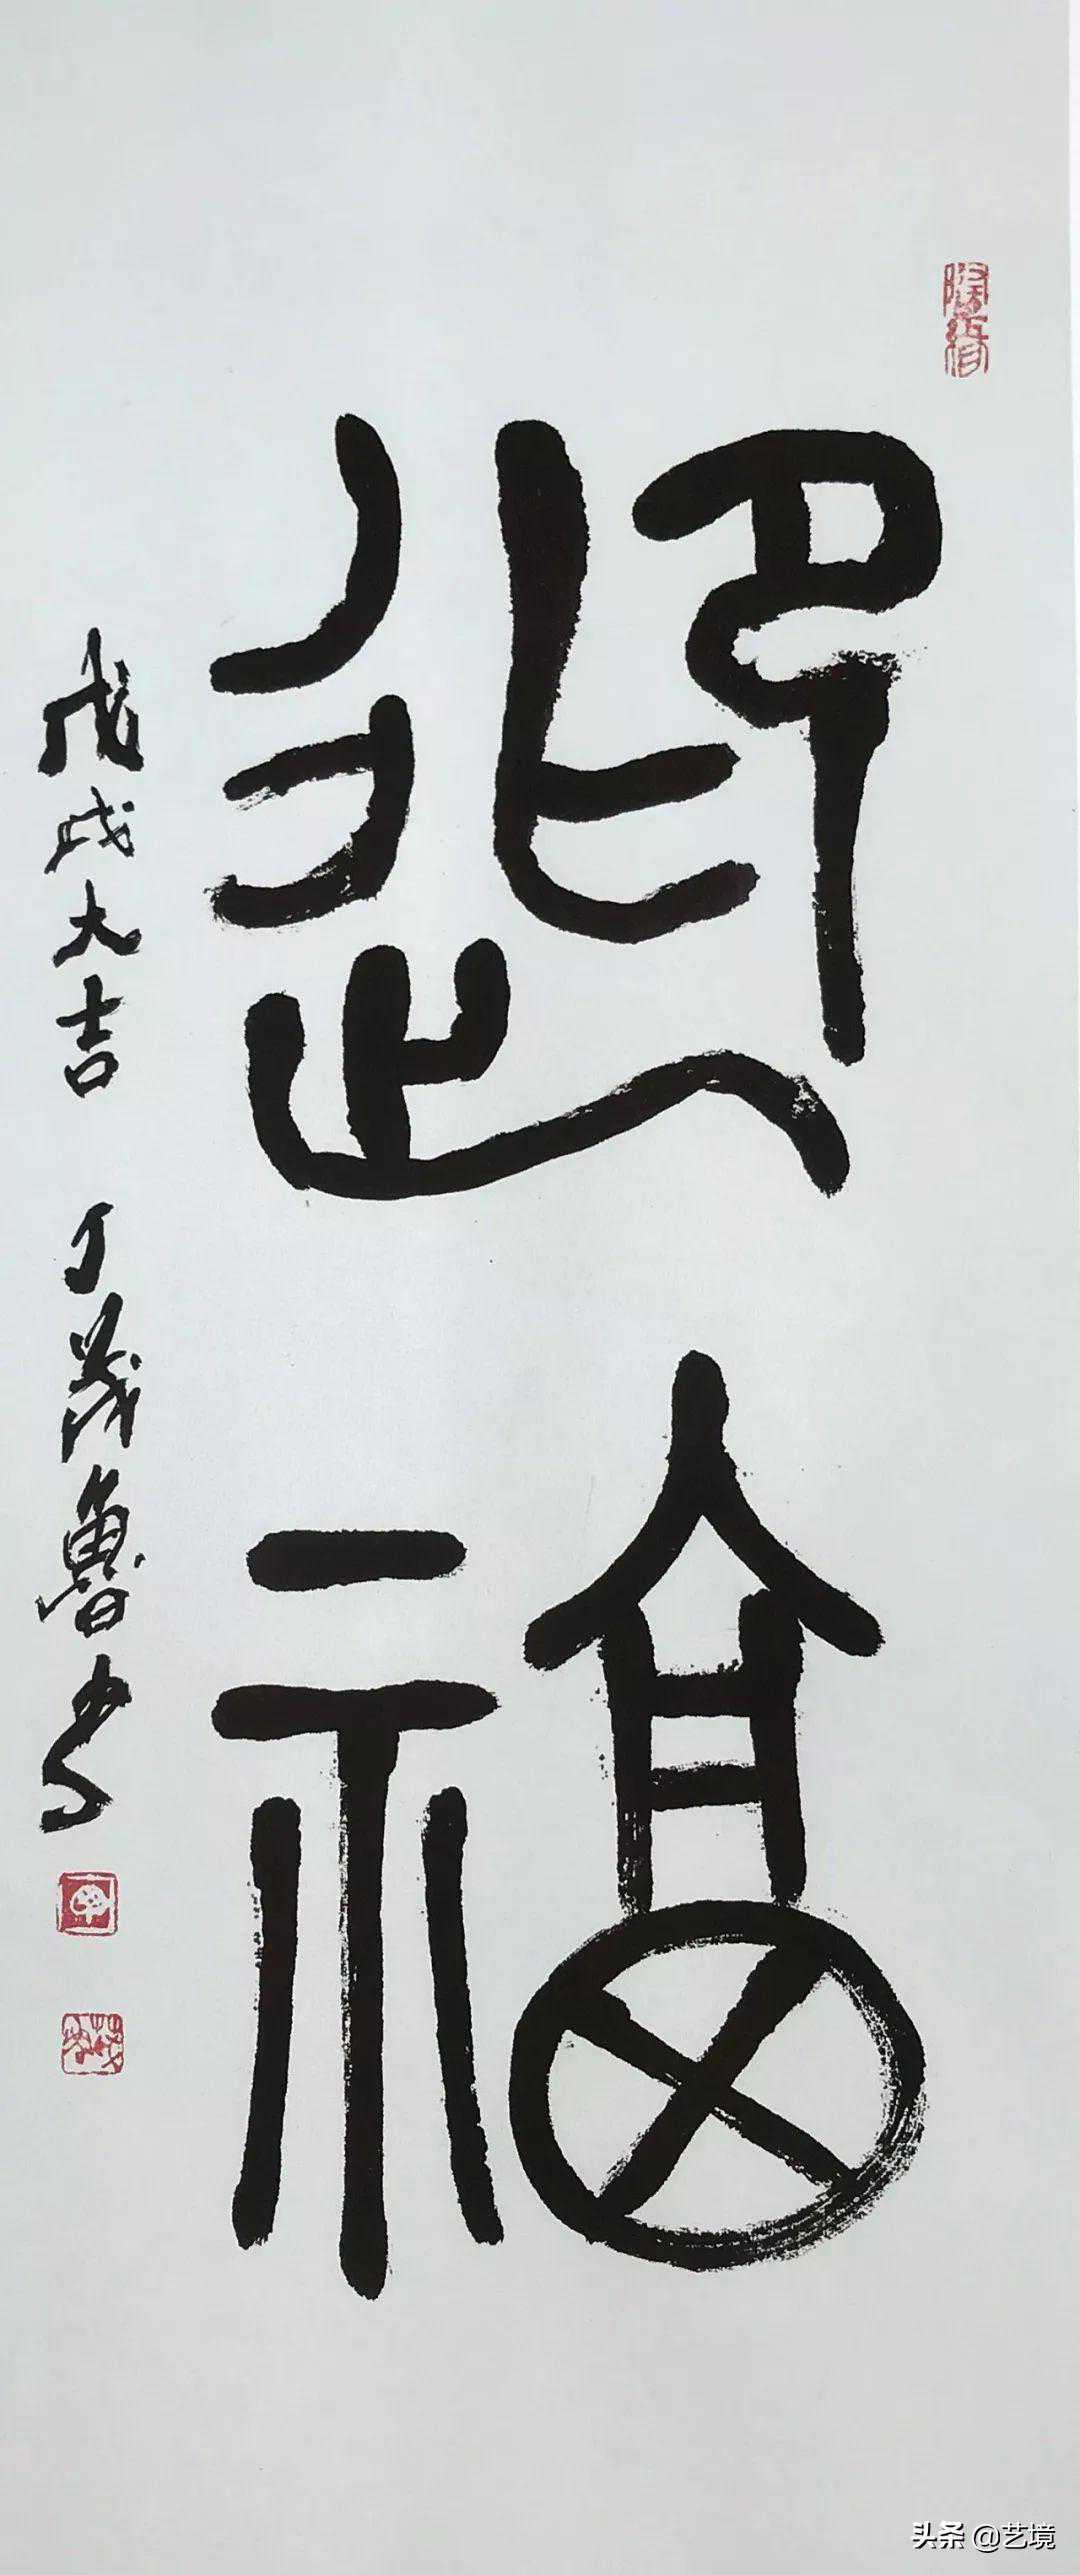 迎福
戊戌大吉 丁茂魯书
头条 @艺境